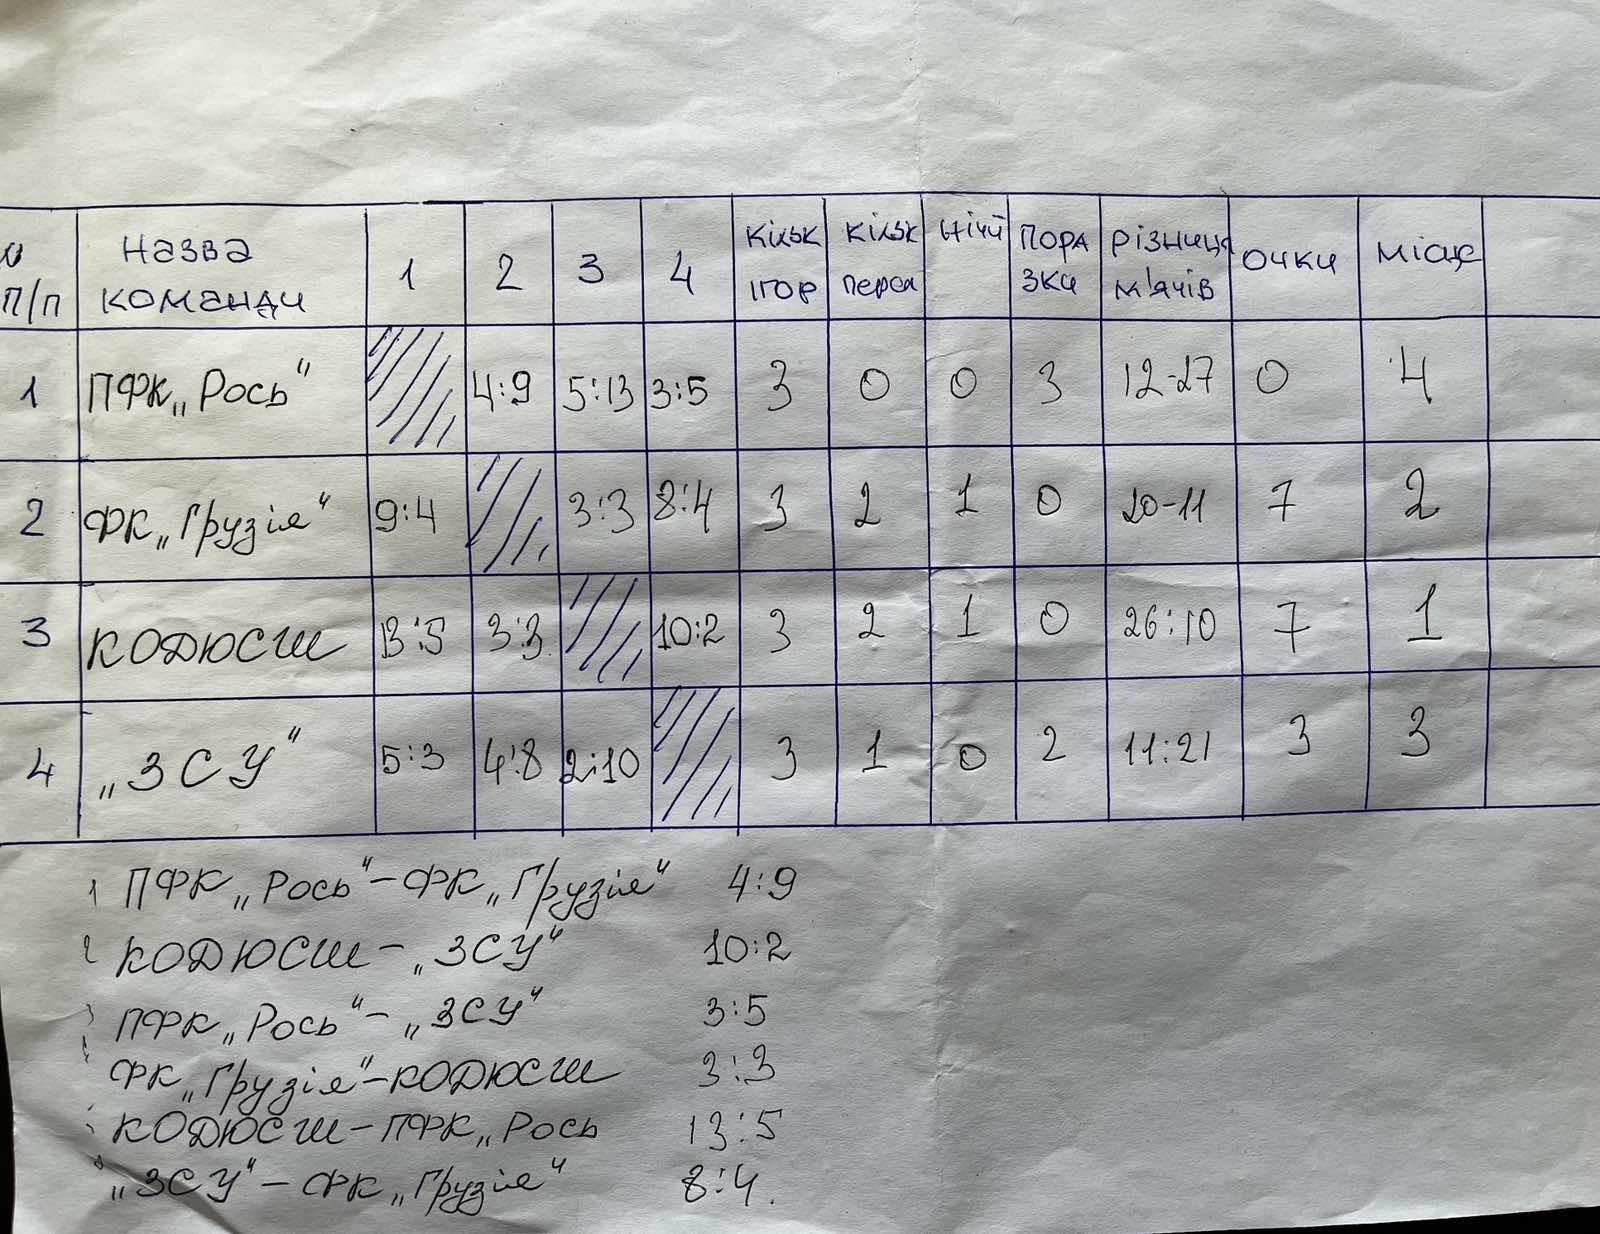 № п/п Назва команди 1 2 3 4 Кільк ігор Кільк перем Нічиї Поразки Різниця м'ячів Очки Місце
1 ПФК „Рось" 4:9 5:13 3:5 3 0 0 3 12-27 0 4
2 ФК „Грузія" 9:4 3:3 8:4 3 2 1 0 20-11 7 2
3 КОДЮСШ 13:5 3:3 10:2 3 2 1 0 26:10 7 1
4 „ЗСУ" 5:3 4:8 2:10 3 1 0 2 11:21 3 3
1 ПФК „Рось" - ФК „Грузія" 4:9
2 КОДЮСШ - „ЗСУ" 10:2
3 ПФК „Рось" - „ЗСУ" 3:5
ФК „Грузія" - КОДЮСШ 3:3
КОДЮСШ - ПФК „Рось 13:5
„ЗСУ" - ФК „Грузія" 8:4.